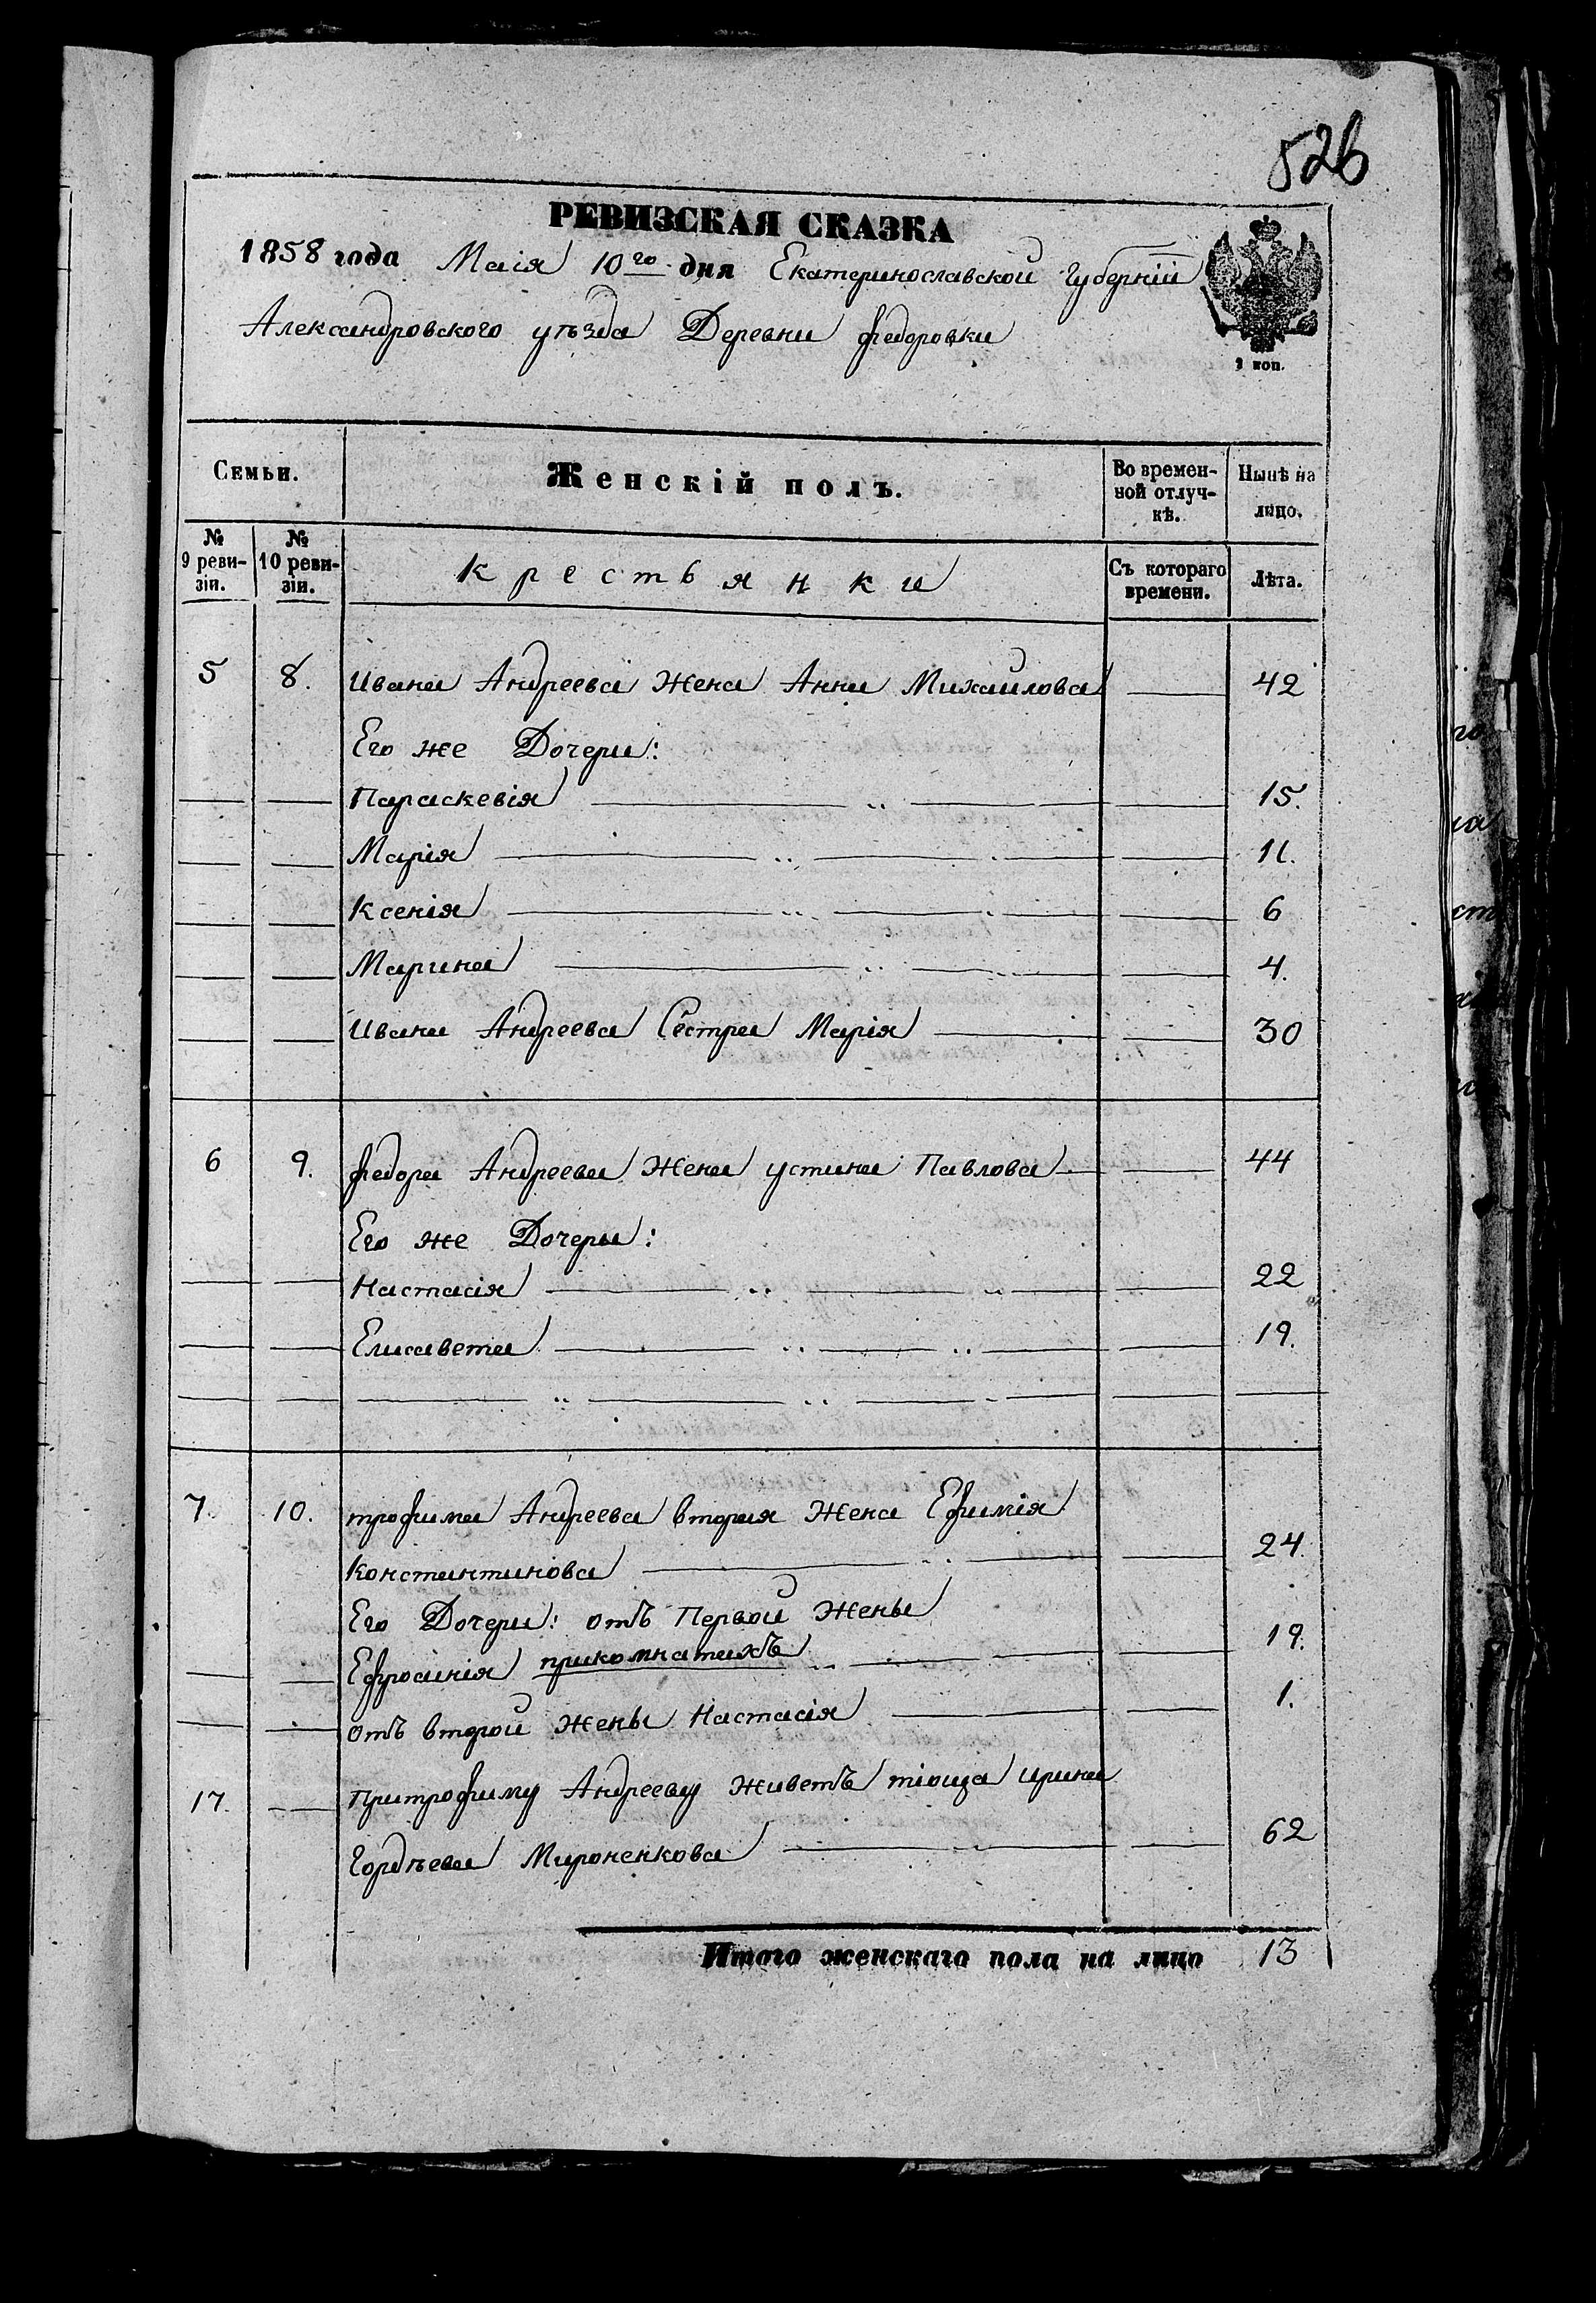 526
РЕВИЗСКАЯ СКАЗКА
1858 года Маія 10го дня Екатеринославской Губерніи
Александровского уѣзда Деревни федоровки
2 коп.
Семьи. Женскій полъ. Во времен-ной отлуч-кѣ. Нынѣ на лицо.
№ 9 реви-зіи. № 10 реви-зіи. Крестьянки Съ котораго времени. Лѣта.
5 8. Ивана Андреева Жена Анна Михайлова 42
Его же Дочери:
Параскевія 15.
Марія 11.
Ксенія 6
Марина 4.
Ивана Андреева Сестра Марія 30
6 9. федора Андреева Жена устина Павлова 44
Его же Дочеры:
Настасія 22
Елисавета 19.
7. 10. трофима Андреева вторая Жена Ефимія
Константинова 24.
Его Дочери: отъ Первой Жены
Ефросинія прикомнатахъ 19.
отъ второй Жены Настасія 1.
17. Притрофиму Андрееву Живетъ тіоща ирина
Гордѣева Мироненкова 62
Итого женскаго пола на лицо 13